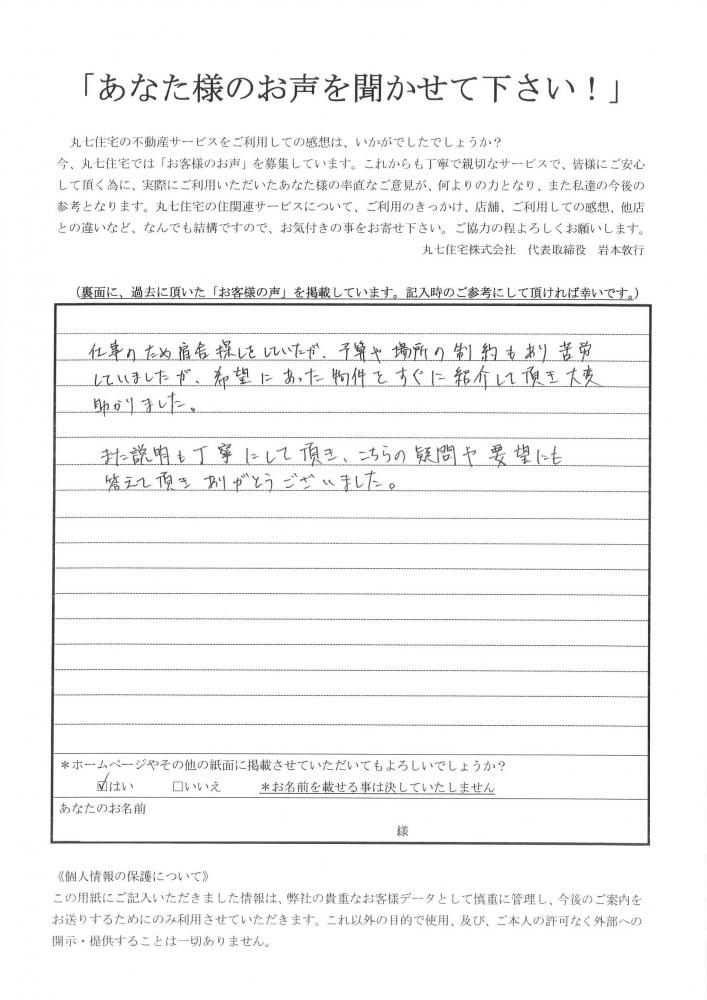 「あなた様のお声を聞かせて下さい！」
丸七住宅の不動産サービスをご利用しての感想は、いかがでしたでしょうか？
今、丸七住宅では「お客様のお声」を募集しています。これからも丁寧で親切なサービスで、皆様にご安心
して頂く為に、実際にご利用いただいたあなた様の率直なご意見が、何よりの力となり、また私達の今後の
参考となります。丸七住宅の住関連サービスについて、ご利用のきっかけ、店舗、ご利用しての感想、他店
との違いなど、なんでも結構ですので、お気付きの事をお寄せ下さい。ご協力の程よろしくお願いします。
丸七住宅株式会社　代表取締役　岩本敦行
（裏面に、過去に頂いた「お客様の声」を掲載しています。記入時のご参考にして頂ければ幸いです。）
仕事のため宿舎探しをしていたが、予算や場所の制約もあり苦労
していましたが、希望にあった物件をすぐに紹介して頂き大変
助かりました。
また説明も丁寧にして頂き、こちらの疑問や要望にも
答えて頂きありがとうございました。
＊ホームページやその他の紙面に掲載させていただいてもよろしいでしょうか？
☑はい　□いいえ　＊お名前を載せる事は決していたしません
あなたのお名前
様
《個人情報の保護について》
この用紙にご記入いただきました情報は、弊社の貴重なお客様データとして慎重に管理し、今後のご案内を
お送りするためにのみ利用させていただきます。これ以外の目的で使用、及び、ご本人の許可なく外部への
開示・提供することは一切ありません。